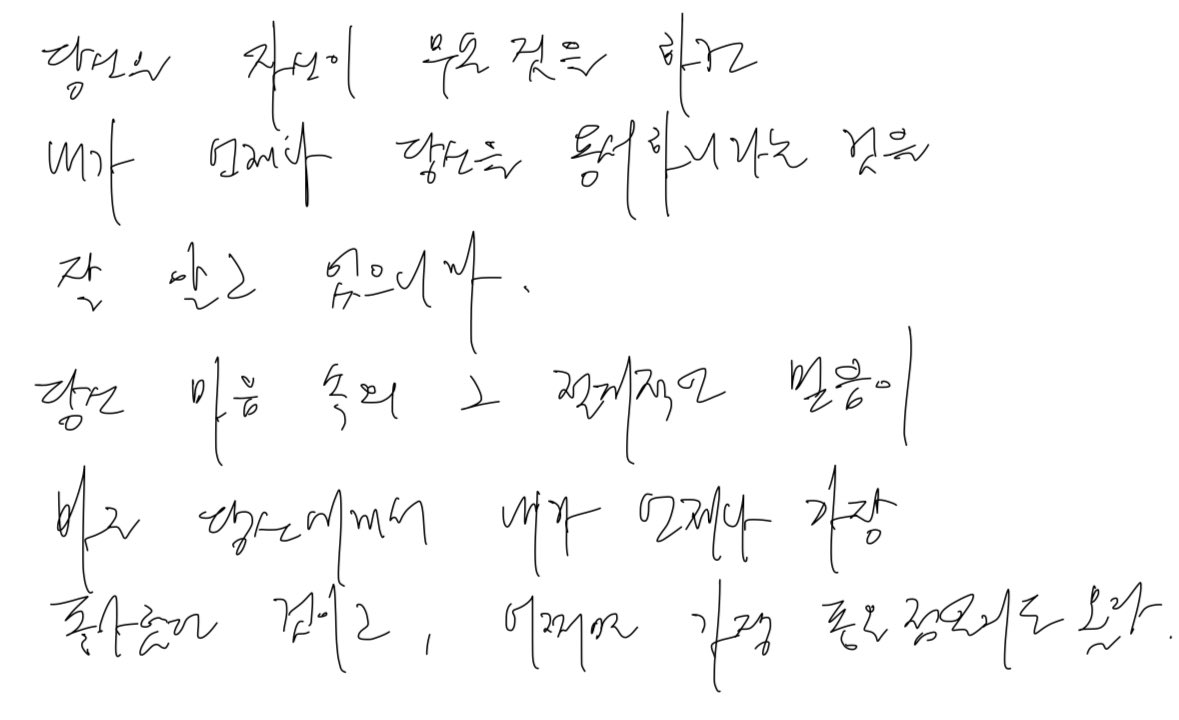 당신의 자신이 무슨 짓을 하건
내가 언제나 당신을 용서하리라는 것을
잘 알고 있으니까.
당신 마음 속의 그 전제적인 믿음이
바로 당신에게서 내가 언제나 가장
좋아하던 점이고, 어쩌면 가장 좋은 점인지도 몰라.